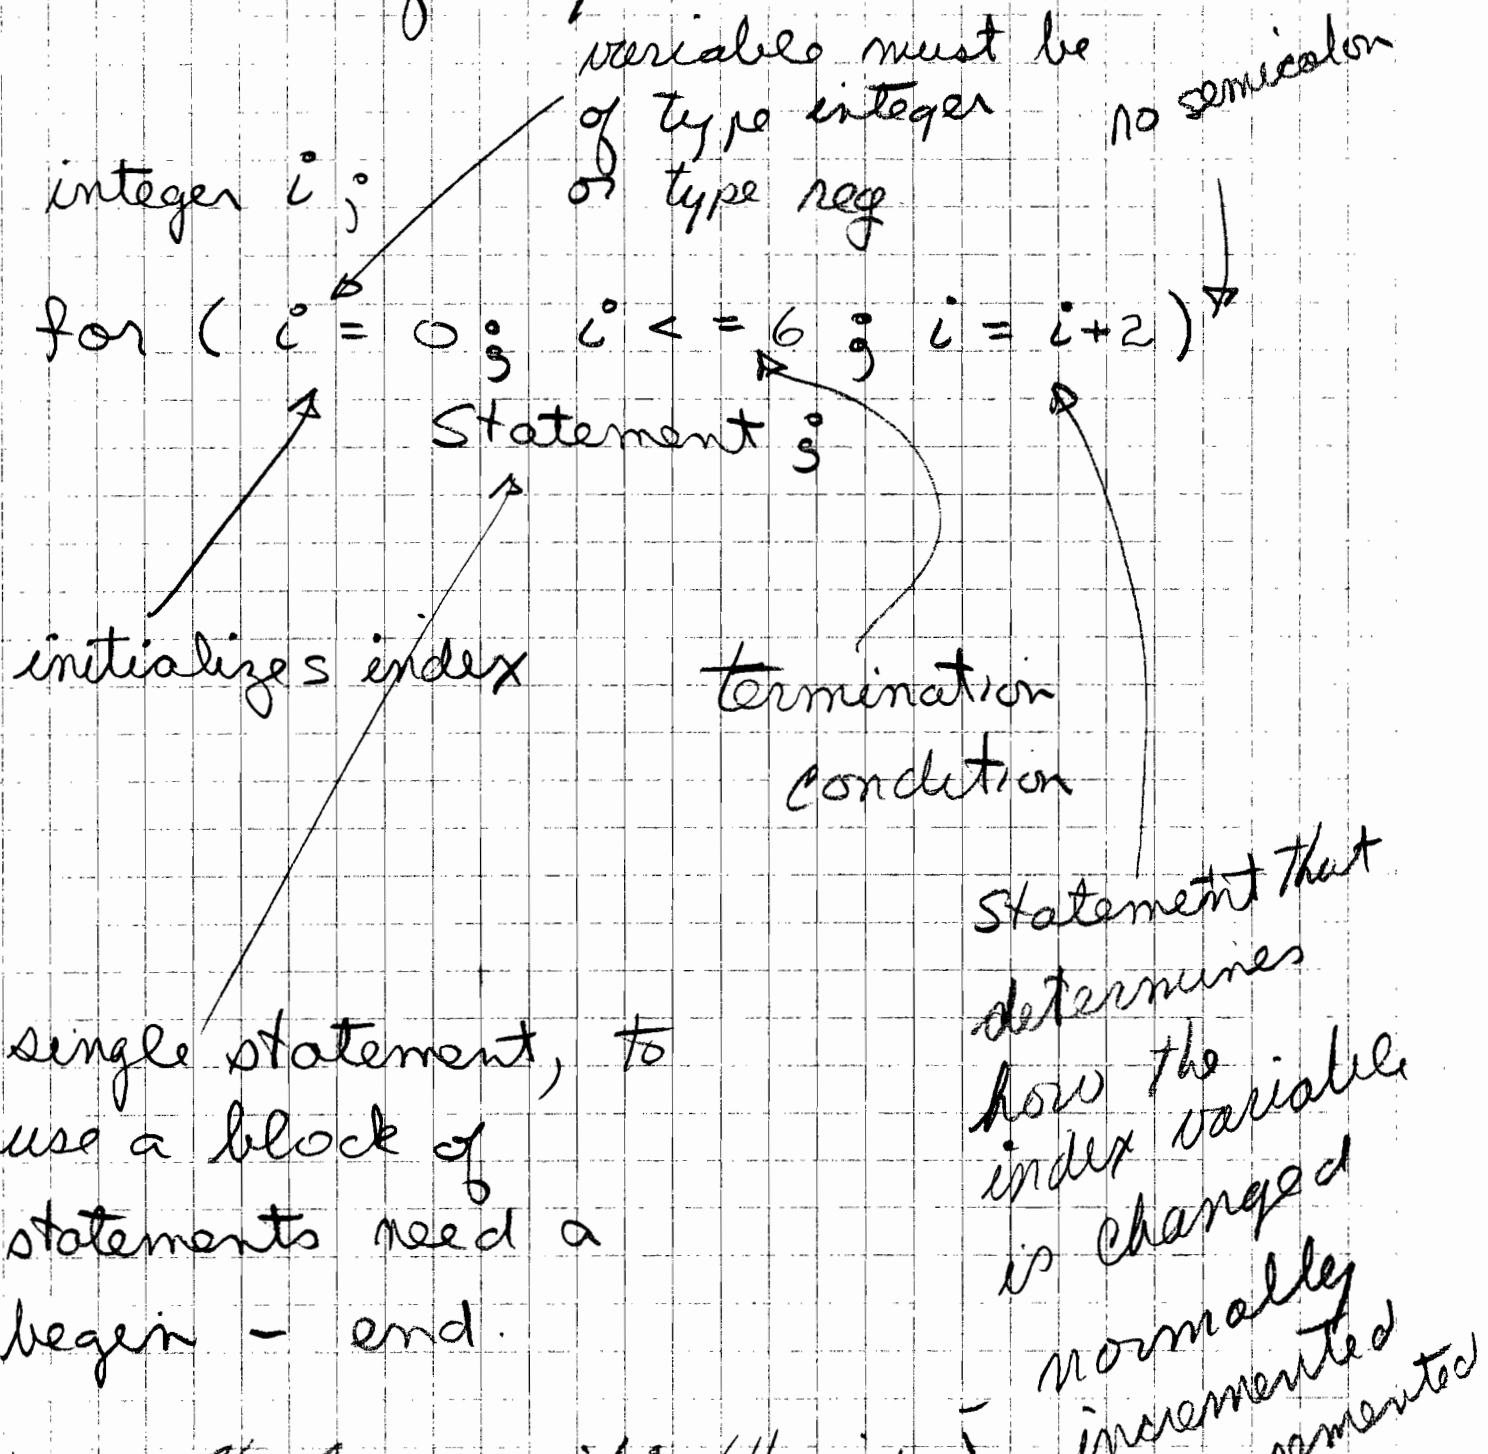 variable must be
of type integer
or type reg
no semicolon
integer i ;
for ( i = 0 ; i < = 6 ; i = i+2 )
Statement ;
initializes index
termination
condition
statement that
determines
how the
index variable
is changed
normally
incremented
single statement, to
use a block of
statements need a
begin - end.